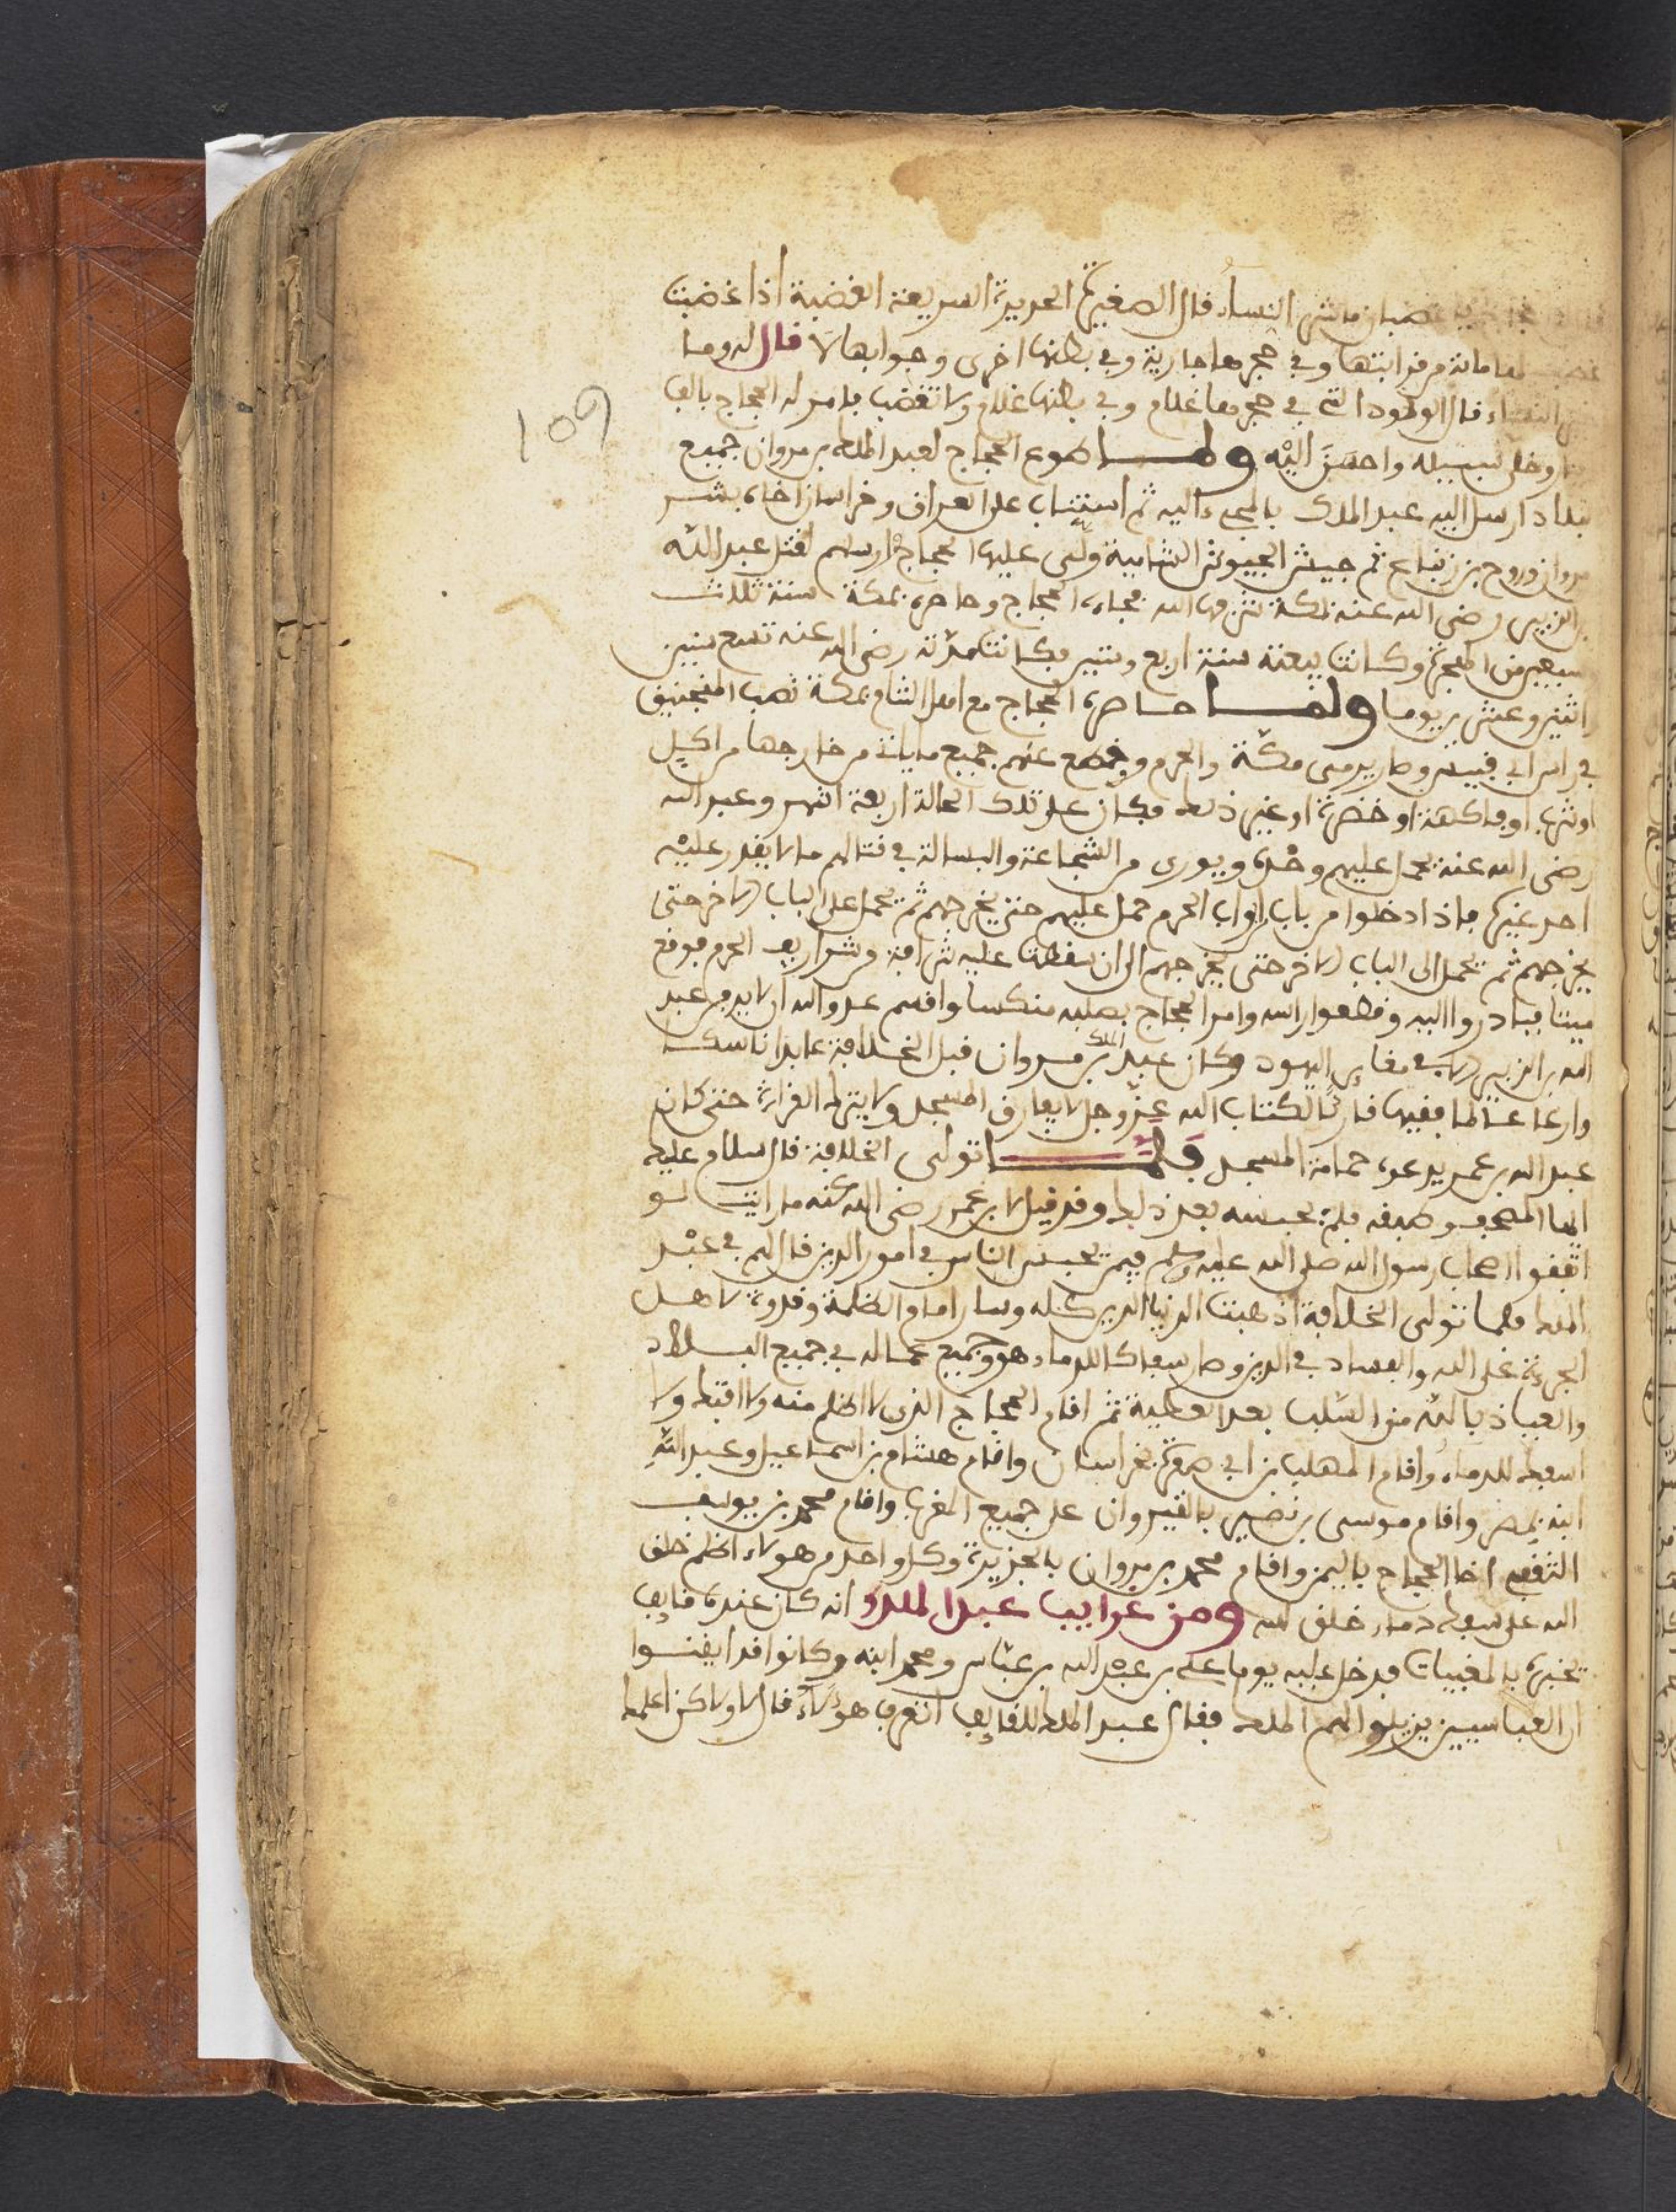 غضبان ما شر النساء قال الصغيرة الحديدة السريعة الغضبة اذا غضبت
لها مائة من قرابتها وفي حجرها جارية وفي بطنها اخرى وجوابها لا قال له وما
النساء قال الولود التي في حجرها غلام وفي بطنها غلام ولا تغضب فامر له الحجاج بالف
وخلى سبيله واحسن اليه ولما طوع الحجاج لعبد الملك بن مروان جميع
البلاد ارسل اليه عبد الملك بالمجيء اليه ثم استناب على العراق وخراسان اخاه بشر
مروان وروح بن زنباع ثم جيش الجيوش الشامية وولى عليها الحجاج وارسلهم لقتل عبد الله
بن الزبير رضي الله عنه بمكة شرفها الله فجاءه الحجاج وحاصره بمكة سنة ثلاث
سبعين من الهجرة وكانت بيعته سنة اربع وستين فكانت مدته رضي الله عنه تسع سنين
اثنين وعشرين يوما ولما حاصره الحجاج مع اهل الشام بمكة نصب المنجنيق
في راس ابي قبيس وصار يرمي مكة والحرم وقطع عنهم جميع ما ياتي من خارجها من اكيل
او شراب او فاكهة او خضرة او غير ذلك فكان على تلك الحالة اربعة اشهر وعبد الله
رضي الله عنه يحمل عليهم وحده ويوري من الشجاعة والبسالة في قتالهم ما لا يقدر عليه
احد غيره فاذا دخلوا من باب ابواب الحرم حمل عليهم حتى يخرجهم ثم يحمل على الباب الاخر حتى
يخرجهم ثم يحمل الى الباب الاخر حتى يخرجهم الى ان سقطت عليه شرافة من شواريف الحرم فوقع
ميتا فبادروا اليه وقطعوا راسه وامر الحجاج بصلبه منكسا واقسم عدو الله ان لا يدفن عبد
الله بن الزبير الا في مقابر اليهود وكان عبد الملك بن مروان قبل الخلافة عابدا ناسكا
وارعا عالما فقيها قارئا لكتاب الله عز وجل لا يفارق المسجد ولا يترك القراءة حتى كان
عبد الله بن عمر يدعوه حمامة المسجد فلما تولى الخلافة قال سلام عليك
ايها المصحف وطبقه فلم يحبسه بعد ذلك وقد قيل لابن عمر رضي الله عنه ما رايت لو
اتقفوا اصحاب رسول الله صلى الله عليه وسلم فيمن تحبس الناس في امور الدين قال لهم في عبد
الملك فلما تولى الخلافة اذهبت الدنيا الدين كله وصار امام الظلمة وقدوة لاهل
الجرءة على الله والفساد في الدين وصار سفاكا للدماء هو وجميع عماله في جميع البلاد
والعياذ بالله من السلب بعد العطية ثم اقام الحجاج الذي لا اظلم منه ولا افتك ولا
اسفك للدماء واقام المهلب بن ابي صفرة بخراسان واقام هشام بن اسماعيل وعبد الله
ابنه بمصر واقام موسى بن نصير بالقيروان على جميع المغرب واقام محمد بن يوسف
الثقفي اخا الحجاج باليمن واقام محمد بن مروان بالجزيرة وكل واحد من هولاء اظلم خلق
الله على سفك دماء خلق الله ومن غرايب عبد الملك انه كان عنده قايف
يخبره بالمغيبات فدخل عليه يوما علي بن عبد الله بن عباس ومحمد ابنه وكانوا قد ايقنوا
ان العباسيين يزيلوا لهم الملك فقال عبد الملك للقايف اتعرف هولاء قال لا ولاكن اعلمك